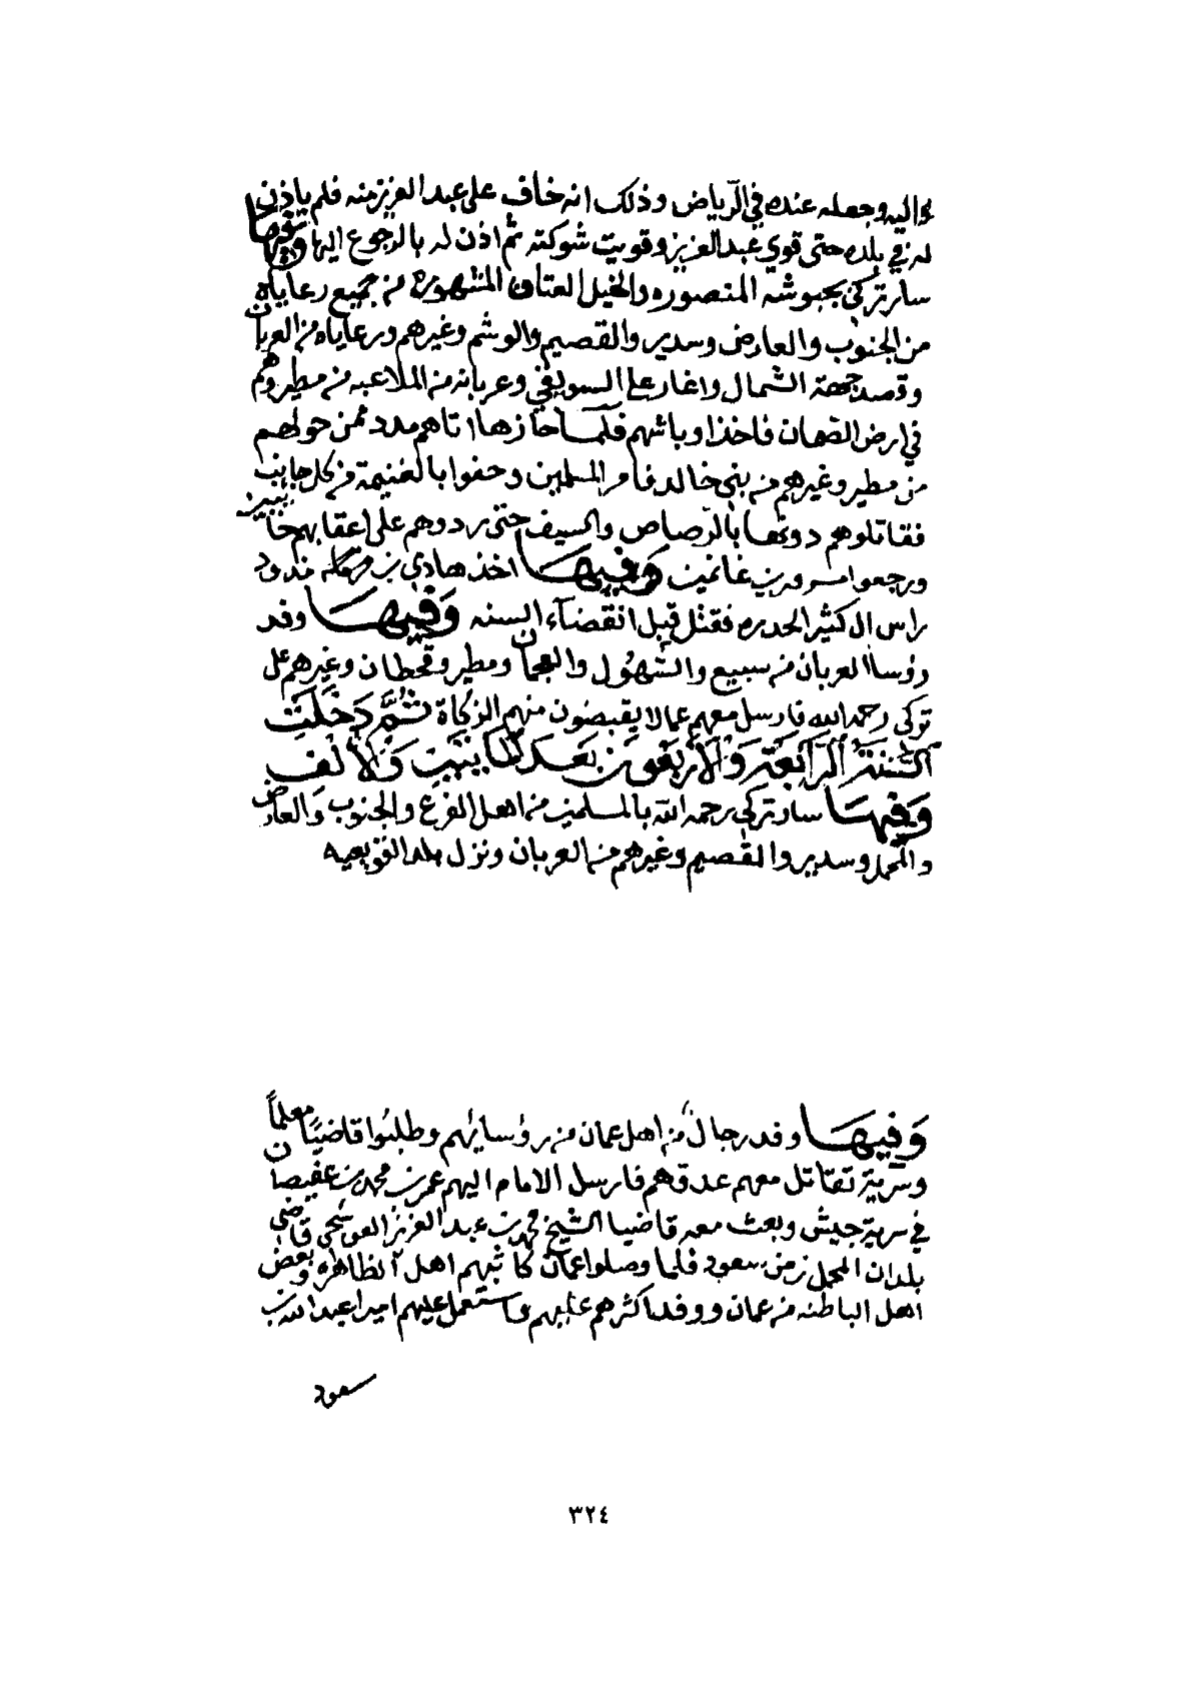 واليه وجعله عنده في الرياض وذلك انه خاف على عبد العزيز منه فلم ياذن
له في بلده حتى قوي عبد العزيز وقويت شوكته ثم اذن له بالرجوع اليها وفيها
سار تركي بجيوشه المنصوره والخيل العتاق المشهورة من جميع رعاياه
من الجنوب والعارض وسدير والقصيم والوشم وغيرهم ورعاياه من العربان
وقصد جهة الشمال واغار على السويفي وعربانه من الملاعبه من مطير وهم
في ارض الصمان فاخذ اوباشهم فلما حازها اتاهم مدد ممن حولهم
من مطير وغيرهم من بني خالد فامر المسلمين وحفوا بالغنيمة من كل جانب
فقاتلوهم دونها بالرصاص والسيف حتى ردوهم على اعقابهم خائبين
ورجعوا مسرورين غانمين وفيها اخذ هادي بن مذود
راس ال كثير الحدره فقتل قبل انقضآء السنه وفيها وفد
رؤسا العربان من سبيع والسهول والعجمان ومطير وقحطان وغيرهم على
تركي رحمه الله فارسل معهم عمالا يقبضون منهم الزكاة ثُمَّ دَخَلَت
السَّنَةُ الرَّابِعَةُ وَالأربَعُون بَعدَ المايتين وَالألف
وفيها سار تركي رحمه الله بالمسلمين من اهل الفرع والجنوب والعارض
والمحمل وسدير والقصيم وغيرهم من العربان ونزل بلد القويعيه
وَفيها وفد رجالٌ من اهل عمان من رؤسائهم وطلبُوا قاضيًا معلماً
وسريّة تقاتل معهم عدوهم فارسل الامام اليهم عمر بن محمد بن عفيصان
في سرية جيش وبعث معه قاضيا الشيخ محمد بن عبد العزيز العوسجي قاضي
بلدان المحمل زمن سعود فلما وصلوا عمان كاتبهم اهل الظاهره وبعض
اهل الباطنه من عمان ووفد اكثرهم عليهم واستعمل عليهم اميرا عبد الله بن
سعود
٣٢٤